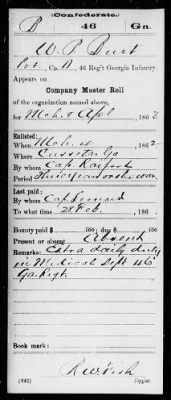 Confederate.
B 46 Ga.
W. P. Burt
Co. H, 46 Reg't Georgia Infantry.
Appears on
Company Muster Roll
of the organization named above,
for Mch & Apl, 1863
Enlisted:
When Mch 4, 1862
Where Cusseta Ga
By whom Capt
Period three years or the war
Last paid:
By whom Capt
To what time 28 Feb, 186
Bounty paid $ 100; due $ 100
Present or absent Absent
Remarks: Extra daily duty
in Medical Dept 46
Ga Regt
Book mark:
R W
(642) Copyist.